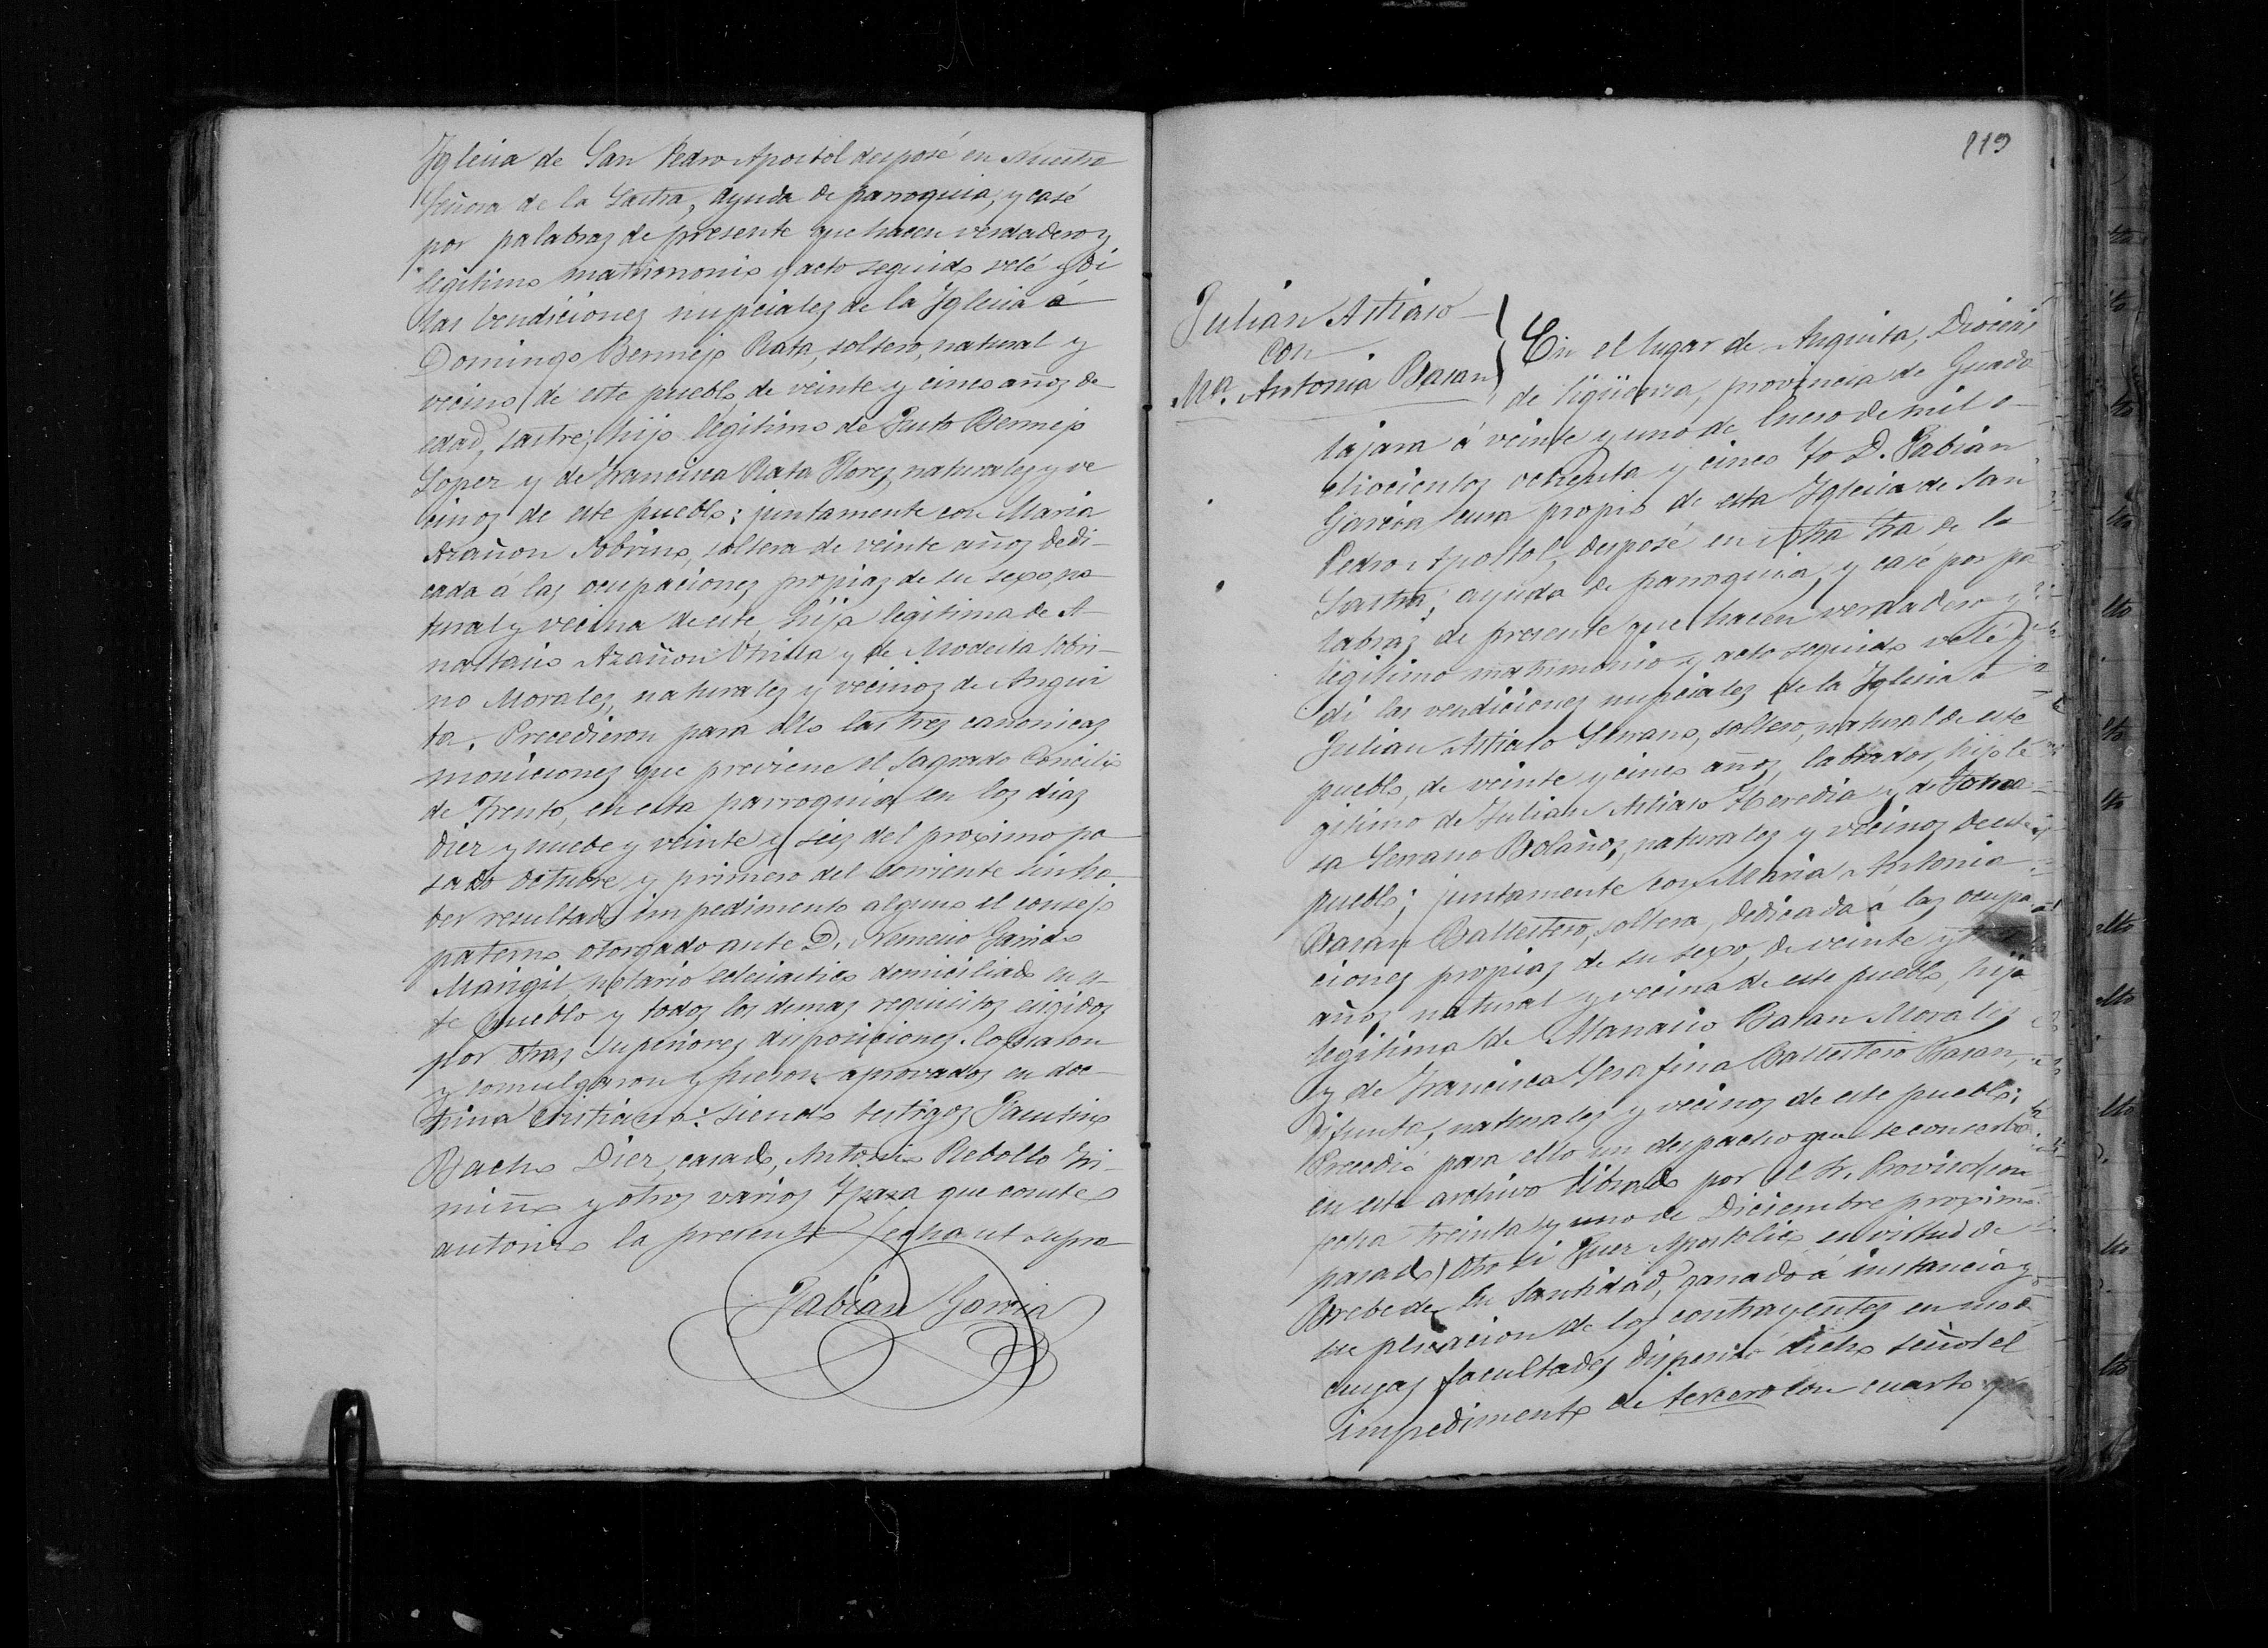 Yglesia de San Pedro Apostol desposé en Nuestra
Señora de la Lastra, ayuda de parroquia, y casé
por palabras de presente que hacen verdadero y
legitimo matrimonio y acto seguido velé y di
las bendiciones nupciales de la Yglesia á
Domingo Bermejo Rata, soltero, natural y
vecino de este pueblo de veinte y cinco años de
edad, sastre; hijo legitimo de Justo Bermejo
Lopez y de Francisca Rata Flores, naturales y ve
cinos de este pueblo: juntamente con Maria
Azañon Sobrino, soltera de veinte años dedi-
cada á las ocupaciones propias de su sexo, na
tural y vecina de este, hija legitima de A-
nastasio Azañon Utrilla y de Modesta Sobri-
no Morales, naturales y vecinos de Angui
ta. Precedieron para ello las tres canonicas
moniciones que previene el Sagrado Concilio
de Trento, en esta parroquia en los dias
diez y nuebe y veinte y seis del proximo pa
sado Octubre y primero del corriente sin ha
ber resultado impedimento alguno el consejo
paterno otorgado ante D. Nemesio Garrido
Manigil notario eclesiastico domiciliado en es-
te pueblo y todos los demas requisitos exigidos
por otras superiores disposiciones. Confesaron
y comulgaron y fueron aprovados en doc-
trina Cristiana: siendo testigos Faustino
Bacho Diez, casado, Antonio Rebollo
y otros varios Y para que conste
autorizo la presente fecha ut supra
Fabian Garcia
119
Julian Astiaso
con
Mª. Antonia Bazan
En el lugar de Anguita, Diocesis
de Sigüenza, provincia de Guada
lajara á veinte y uno de Enero de mil o-
chocientos ochenta y cinco Yo D. Fabian
Garcia cura propio de esta Yglesia de San
Pedro Apostol, desposé en Ntra Sra de la
Lastra, ayuda de parroquia, y casé por pa
labras de presente que hacen verdadero y
legitimo matrimonio y acto seguido velé y
di las vendiciones nupciales de la Yglesia á
Julian Astiaso Serrano, soltero, natural de este
pueblo, de veinte y cinco años, labrador, hijo le
gitimo de Julian Astiaso Heredia y de Toma
sa Serrano Bolaños, naturales y vecinos de este
pueblo; juntamente con Maria Antonia
Bazan Ballestero, soltera, dedicada á las ocupa
ciones propias de su sexo, de veinte y
años natural y vecina de este pueblo, hija
legitima de Manasio Bazan Morales
y de Francisca Serafina Ballestero Bazan,
difunta, naturales y vecinos de este pueblo:
Precedió para ello un despacho que se conserva
en este archivo librado por el Sr. Provisor con
fecha treinta y uno de Diciembre proximo
pasado Otro si Juez Apostolico en virtud de
Brebe de Su Santidad, ganado á instancia y
suplicacion de los contrayentes en uso de
cuyas facultades dispensó dicho señor el
impedimento de tercero con cuarto gr